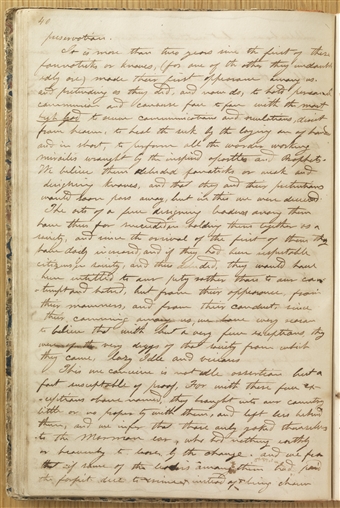 40
preservation.
It is more than two years since the first of these
fannaticks or knaves, (for one of the other they undoubt
edly are) made their first appearance among us.
and pretending as they did, and now do, to hold personal
communion and converse face to face with the most
high God to receive communications and revelations direct
from heaven, to heal the sick by the laying on of hands
and in short, to perform all the wonder working
miracles wrought by the inspired apostles and Prophets.
We believe them deluded fanaticks or weak and
designing knaves, and that they and their pretentions
would soon pass away, but in this we were deceived
The arts of a few designing leaders among them
have thus far succeeded in holding them together as a
society, and since the arrival of the first of them they
have daily increased, and if they had been respectable
citizens in society, and thus deluded, they would have
been intitled to our pity rather than to our con
tempt and hatred, but from their appearance, from
their manners, and from their conduct since
their comming among us, we have every reason
to believe that with but a very few exceptions, they
were of the very dregs of that society from which
they came, lazy Idle and vicious
This we conceive is not idle assertion but a
fact susceptable of proof, For with these few ex-
ceptions above named, they brought into our country
little or no property with them, and left less behind
them, and we infer that those only yoked themselves
to the Mormon car, who had nothing earthly
or heavenly to loose by the change, and we fear
that if some of the leaders among them had paid
the forfeit due to crime instead of being chosen